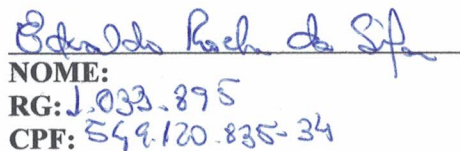 Edvaldo Rocha da Silva
NOME:
RG: 1.033.895
CPF: 549.120.835-34